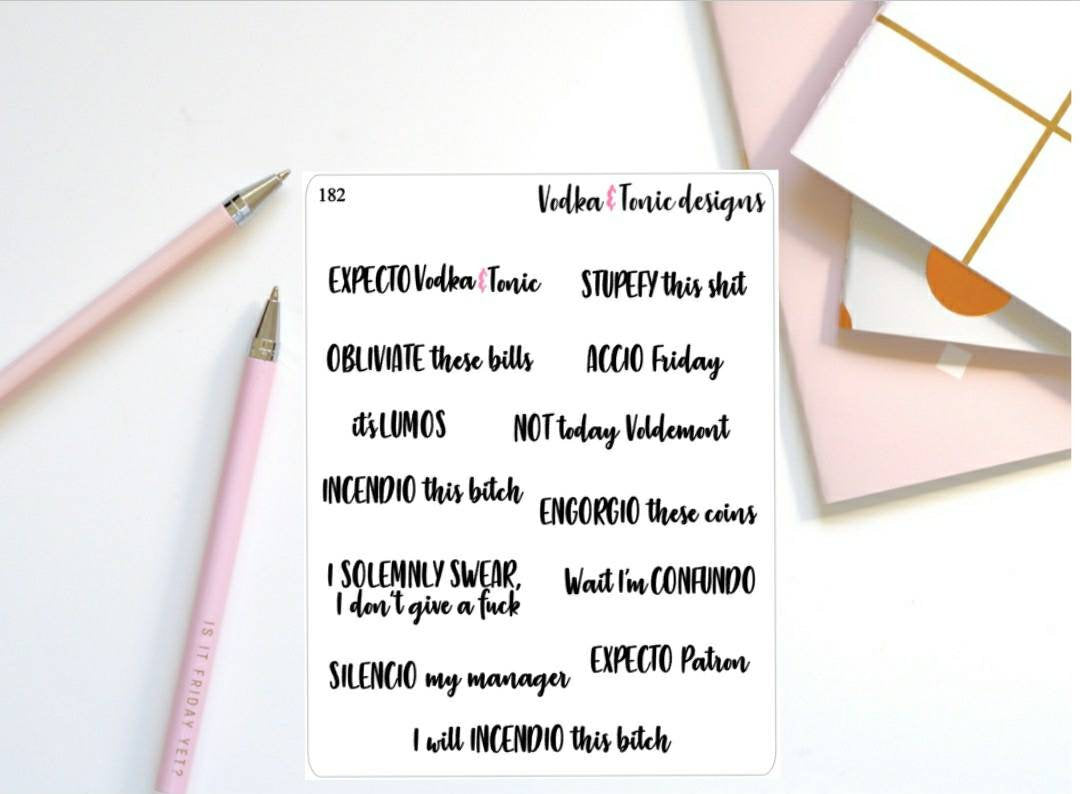 182
Vodka & Tonic designs
EXPECTO Vodka & Tonic
STUPEFY this shit
OBLIVIATE these bills
ACCIO Friday
it's LUMOS
NOT today Voldemont
INCENDIO this bitch
ENGORGIO these coins
I SOLEMNLY SWEAR,
I don't give a fuck
Wait I'm CONFUNDO
SILENCIO my manager
EXPECTO Patron
I will INCENDIO this bitch
IS IT FRIDAY YET?